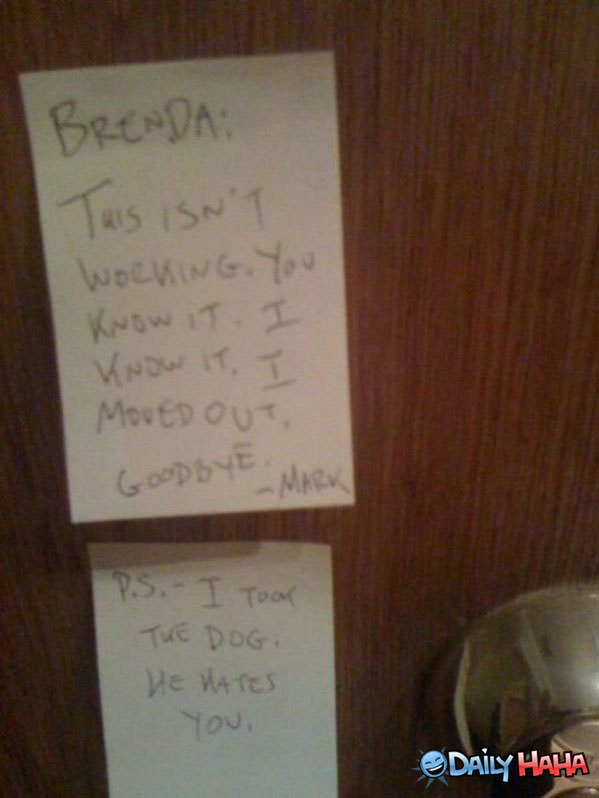 BRENDA:
THIS ISN'T
WORKING. YOU
KNOW IT. I
KNOW IT. I
MOVED OUT.
GOODBYE.
-MARK
P.S.- I TOOK
THE DOG.
HE HATES
YOU.
DAILY HAHA